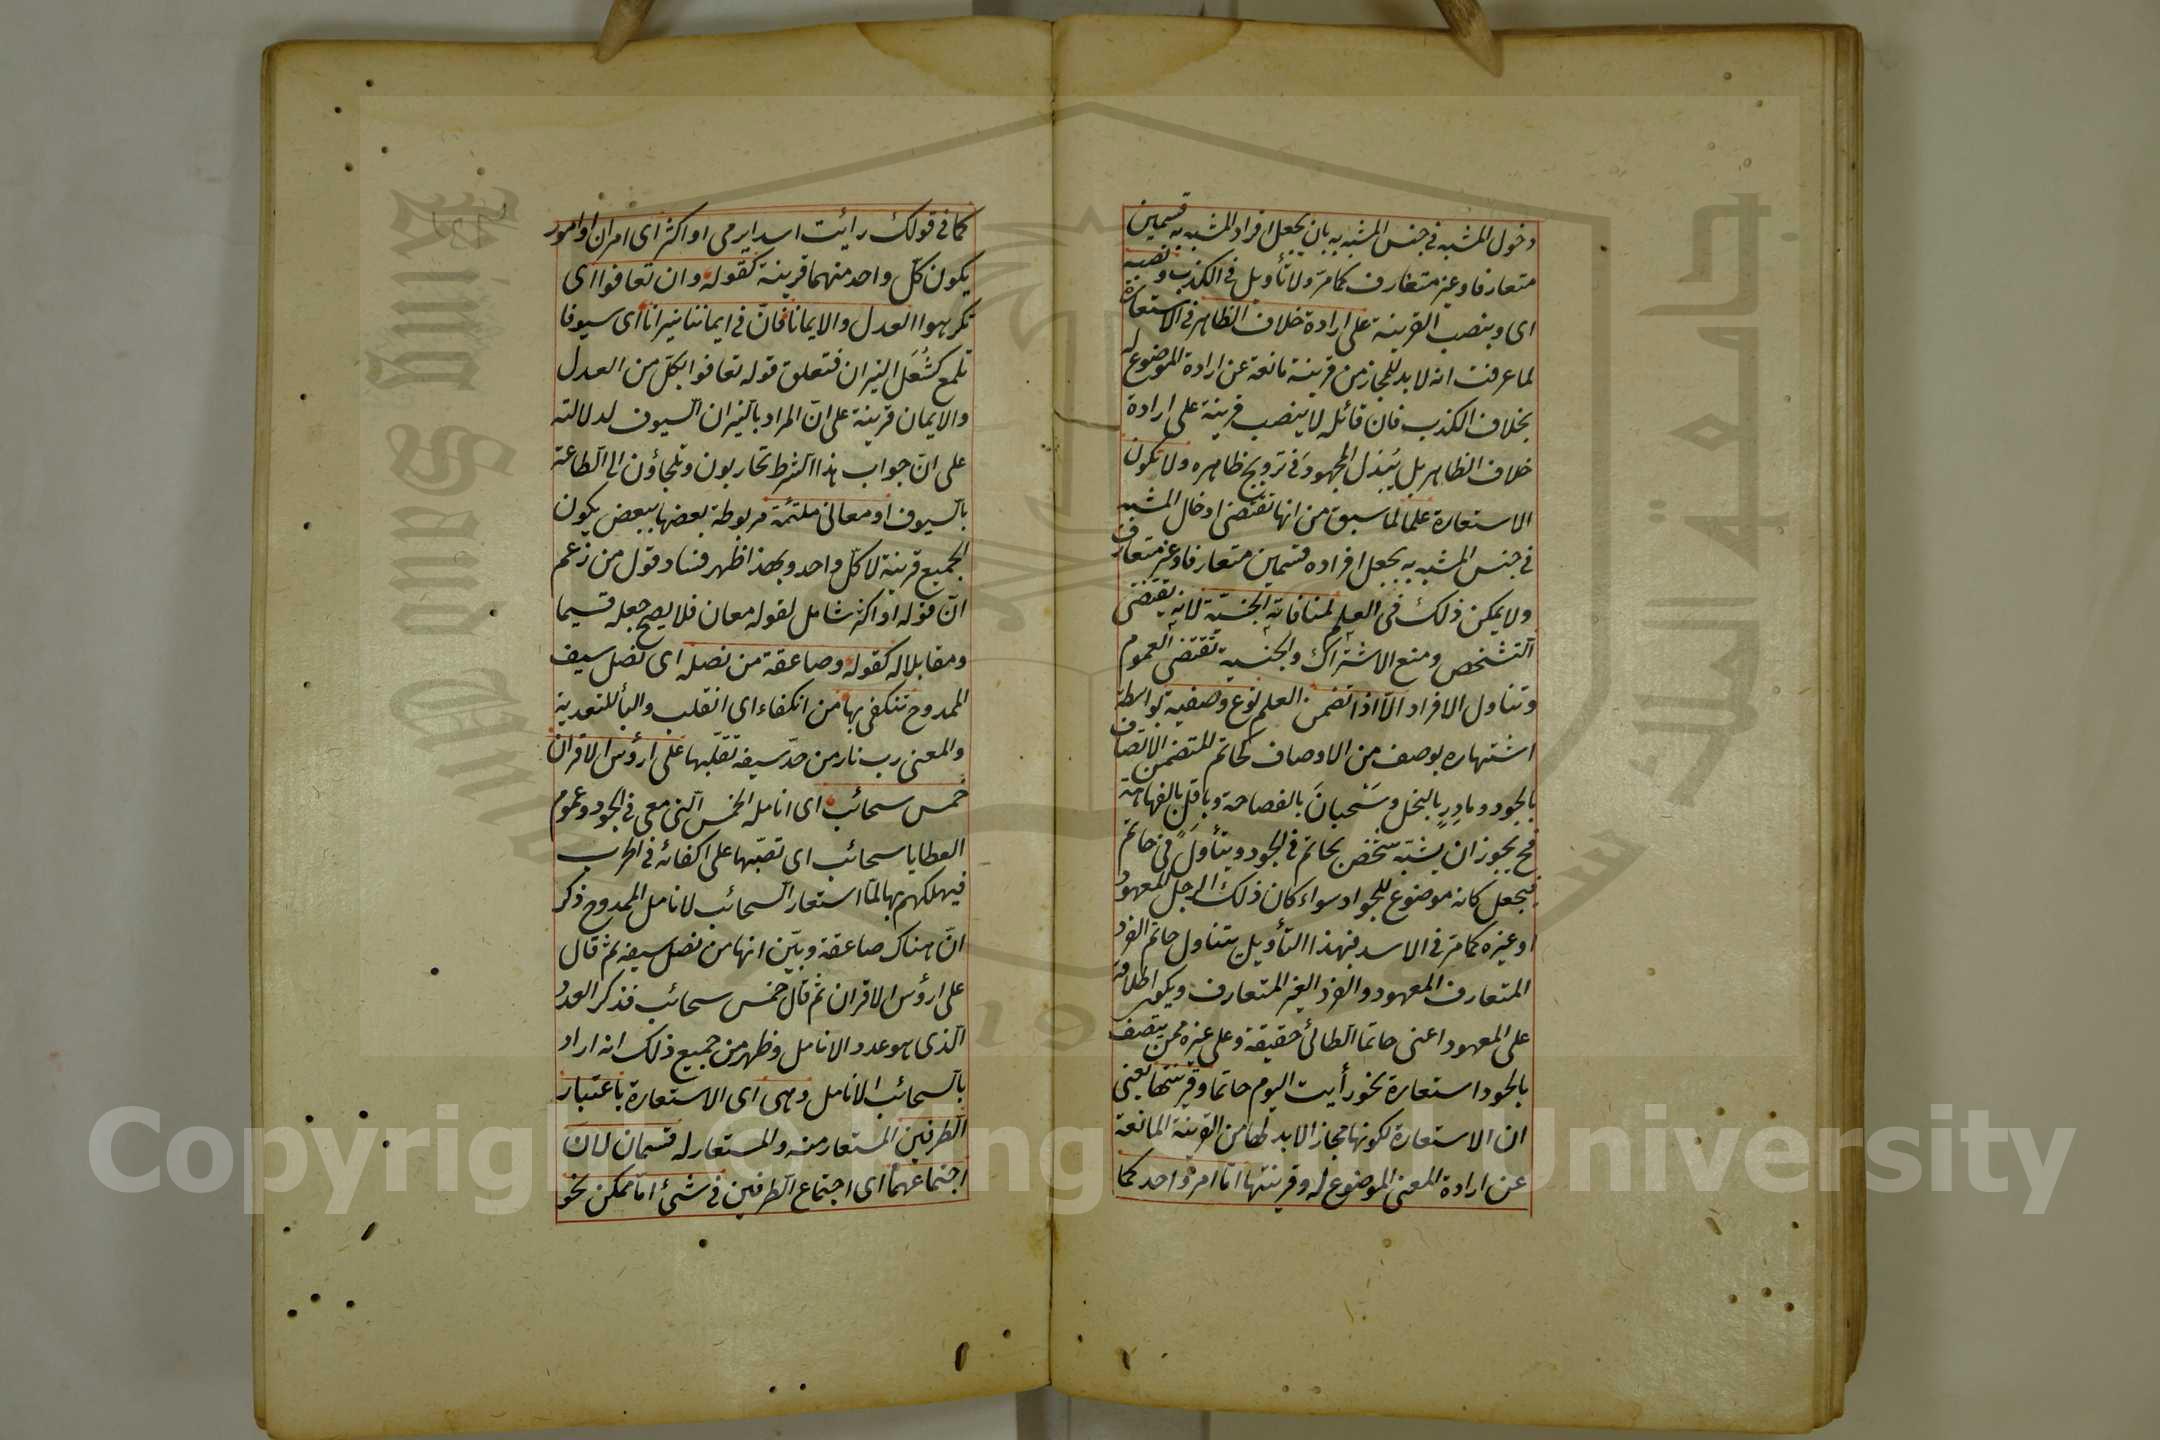 دخول المشبه في جنس المشبه به بان يجعل افراد المشبه به قسمين
متعارفا وغير متعارف كما مر ولا تأويل في الكذب ونصب
اى وبنصب القرينة على ارادة خلاف الظاهر في الاستعارة
لما عرفت انه لا بد للمجاز من قرينة مانعة عن ارادة الموضوع له
بخلاف الكذب فان قائله لا ينصب قرينة على ارادة
خلاف الظاهر بل يَبذل المجهودَ في ترويج ظاهره ولا تكون
الاستعارة علما لما سبق من انها تقتضى ادخال المشبه
في جنس المشبه به بجعل افراده قسمين متعارفا وغير متعارف
ولا يمكن ذلك في العلم لمنافاته الجنسيّة لانه يقتضى
التشخص ومنع الاشتراك والجنسية تقتضى العموم
وتناول الافراد الّا اذا تضمن العلم نوع وصفية بواسطة
اشتهاره بوصف من الاوصاف كحاتم المتضمن الاتصاف
بالجود ومادِرٍ بالبخل وسَحبانَ بالفصاحة وباقل بالفهاهة
فح يجوز ان يشبّه شخص بحاتم في الجود ويتأوّل في حاتم
فيجعل كانه موضوع للجواد سواء كان ذلك الرجل المعهود
او غيره كما مرّ في الاسد فبهذا التأويل يتناول حاتم الفرد
المتعارف المعهود والفرد الغير المتعارف ويكون اطلاقه
على المعهود اعنى حاتما الطائى حقيقة وعلى غيره ممن يتصف
بالجود استعارة نحو رأيت اليوم حاتما وقرينتها يعنى
ان الاستعارة لكونها مجازا لا بد لها من القرينة المانعة
عن ارادة المعنى الموضوع له وقرينتها اما امر واحد كما
كما في قولك رأيت اسدا يرمى او اكثر اى امران او امور
يكون كلّ واحد منهما قرينة كقوله وان تعافوا اى
تكرهوا العدل والايمانا فانّ في ايماننا نيرانا اى سيوفا
تلمع كشُعَل النيران فتعلق قوله تعافوا بكل من العدل
والايمان قرينة على انّ المراد بالنيران السيوف لدلالته
على انّ جواب هذا الشرط تحاربون وتلجأون الى الطاعة
بالسيوف او معانى ملتئمة مربوطة بعضها ببعض يكون
الجميع قرينة لا كلّ واحد وبهذا ظهر فساد قول من زعم
انّ قوله او اكثر شامل لقوله معان فلا يصح جعله قسيما
ومقابلا له كقوله وصاعقة من نصله اى نصل سيف
الممدوح تنكفى بها من انكفاء اى انقلب والبأ للتعدية
والمعنى رب نار من حدّ سيفه تقلّبها على ارؤس الاقران
خمس سحائب اى انامله الخمس التى هى في الجود وعموم
العطايا سحائب اى تصبّها على اكفائه في الحرب
فيهلكهم بها لمّا استعار السحائب لانامل الممدوح ذكر
انّ هناك صاعقة وبيّن انها من نصل سيفه ثم قال
على ارؤس الاقران ثم قال خمس سحائب فذكر العدد
الذى هو عدد الانامل فظهر من جميع ذلك انه اراد
بالسحائب الانامل وهى اى الاستعارة باعتبار
الطرفين المستعار منه والمستعار له قسمان لانّ
اجتماعهما اى اجتماع الطرفين في شئ اما ممكن نحو
جامعة الملك سعود
King Saud University
1957
Copyright © King Saud University